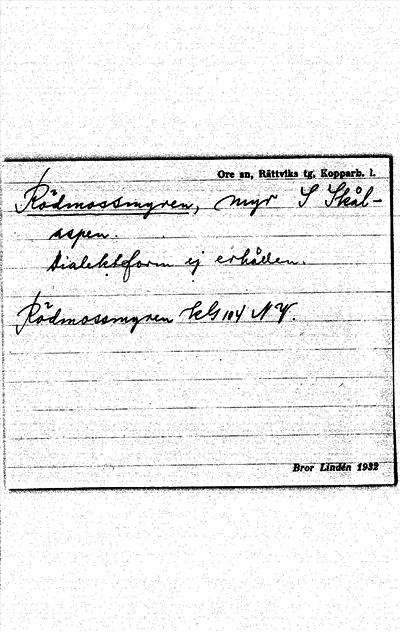 Ore sn, Rättviks tg, Kopparb. l.
Rödmossmyren, myr S Skål-
aspen.
Dialektform ej erhållen.
Rödmossmyren kG 104 NV.
Bror Lindén 1932